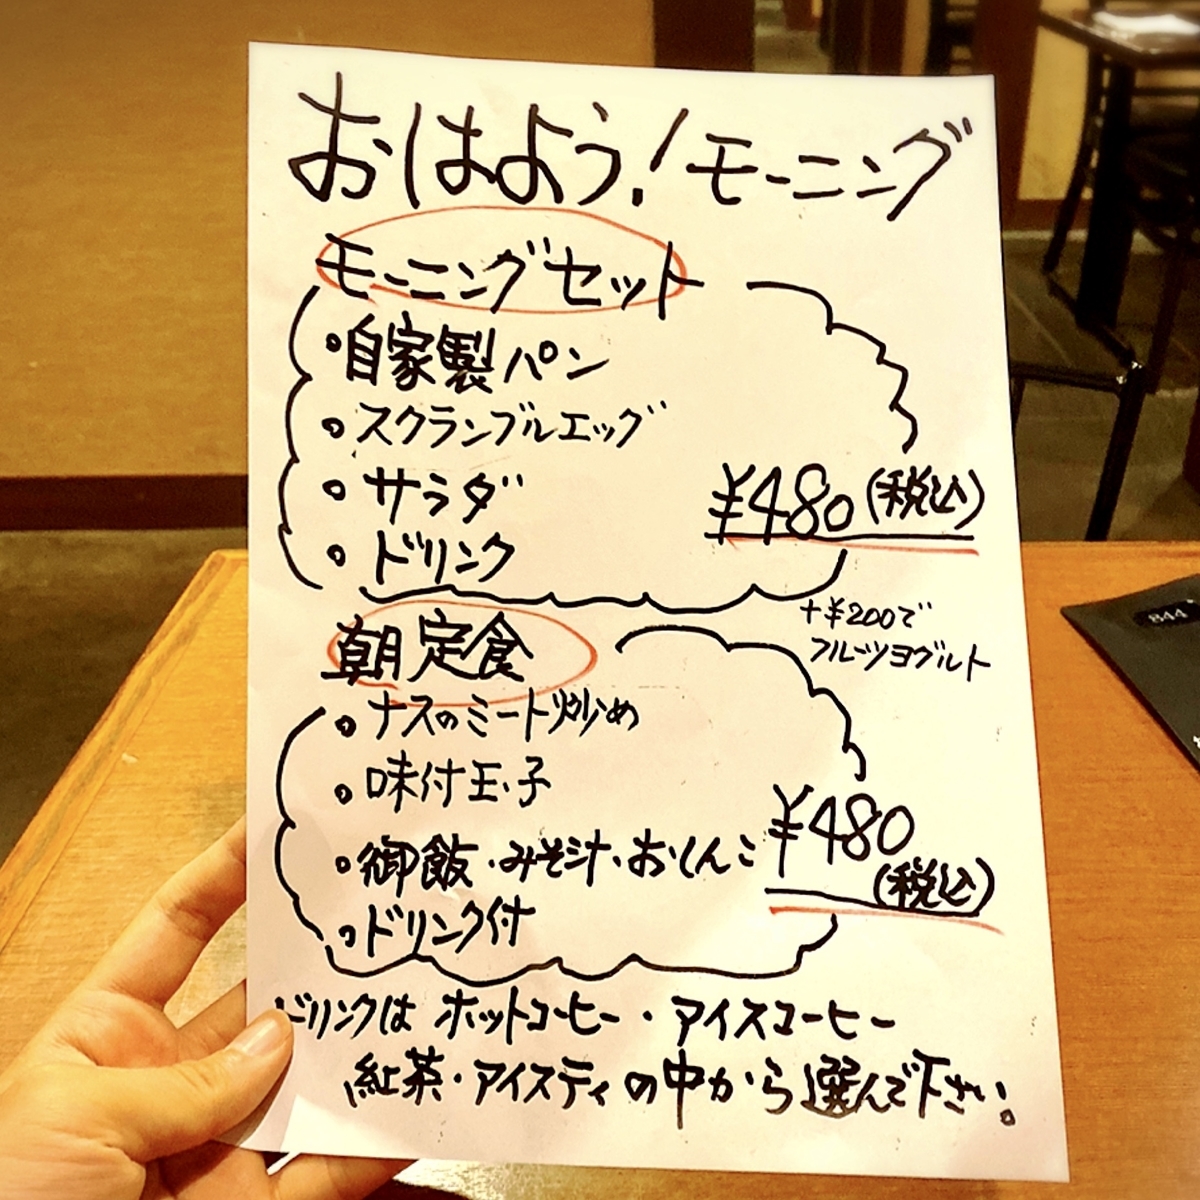 おはよう!モーニング
モーニングセット
・自家製パン
・スクランブルエッグ
・サラダ
・ドリンク
¥480(税込)
+¥200で
フルーツヨグルト
朝定食
・ナスのミート炒め
・味付玉子
・御飯・みそ汁・おしんこ
・ドリンク付
¥480
(税込)
ドリンクは ホットコーヒー・アイスコーヒー
紅茶・アイスティの中から選んで下さい。
844